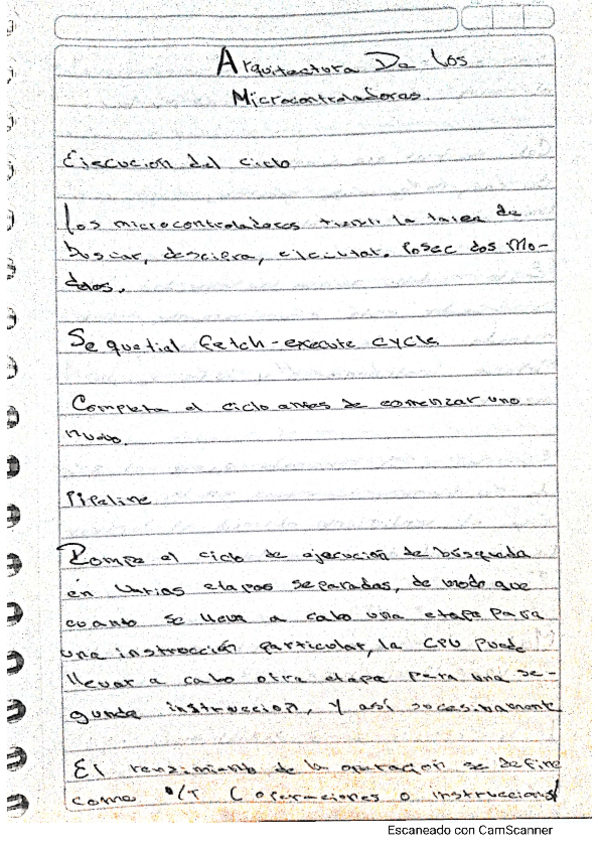 Arquitectura De los
Microcontroladores.
Ejecución del ciclo
Los microcontroladores tienen la tarea de
buscar, desciera, ejecutar. Posee dos Mo-
delos.
Sequetial fetch-execute cycle
Completa el ciclo antes de comenzar uno
nuevo.
Pipeline
Rompe el ciclo de ejecución de búsqueda
en varias etapas separadas, de modo que
cuando se lleva a cabo una etapa para
una instrucción particular, la CPU puede
llevar a cabo otra etapa para una se-
gunda instruccion, y así sucesivamente
El rendimiento de la operación se define
como O/T (operaciones o instrucciones/
Escaneado con CamScanner